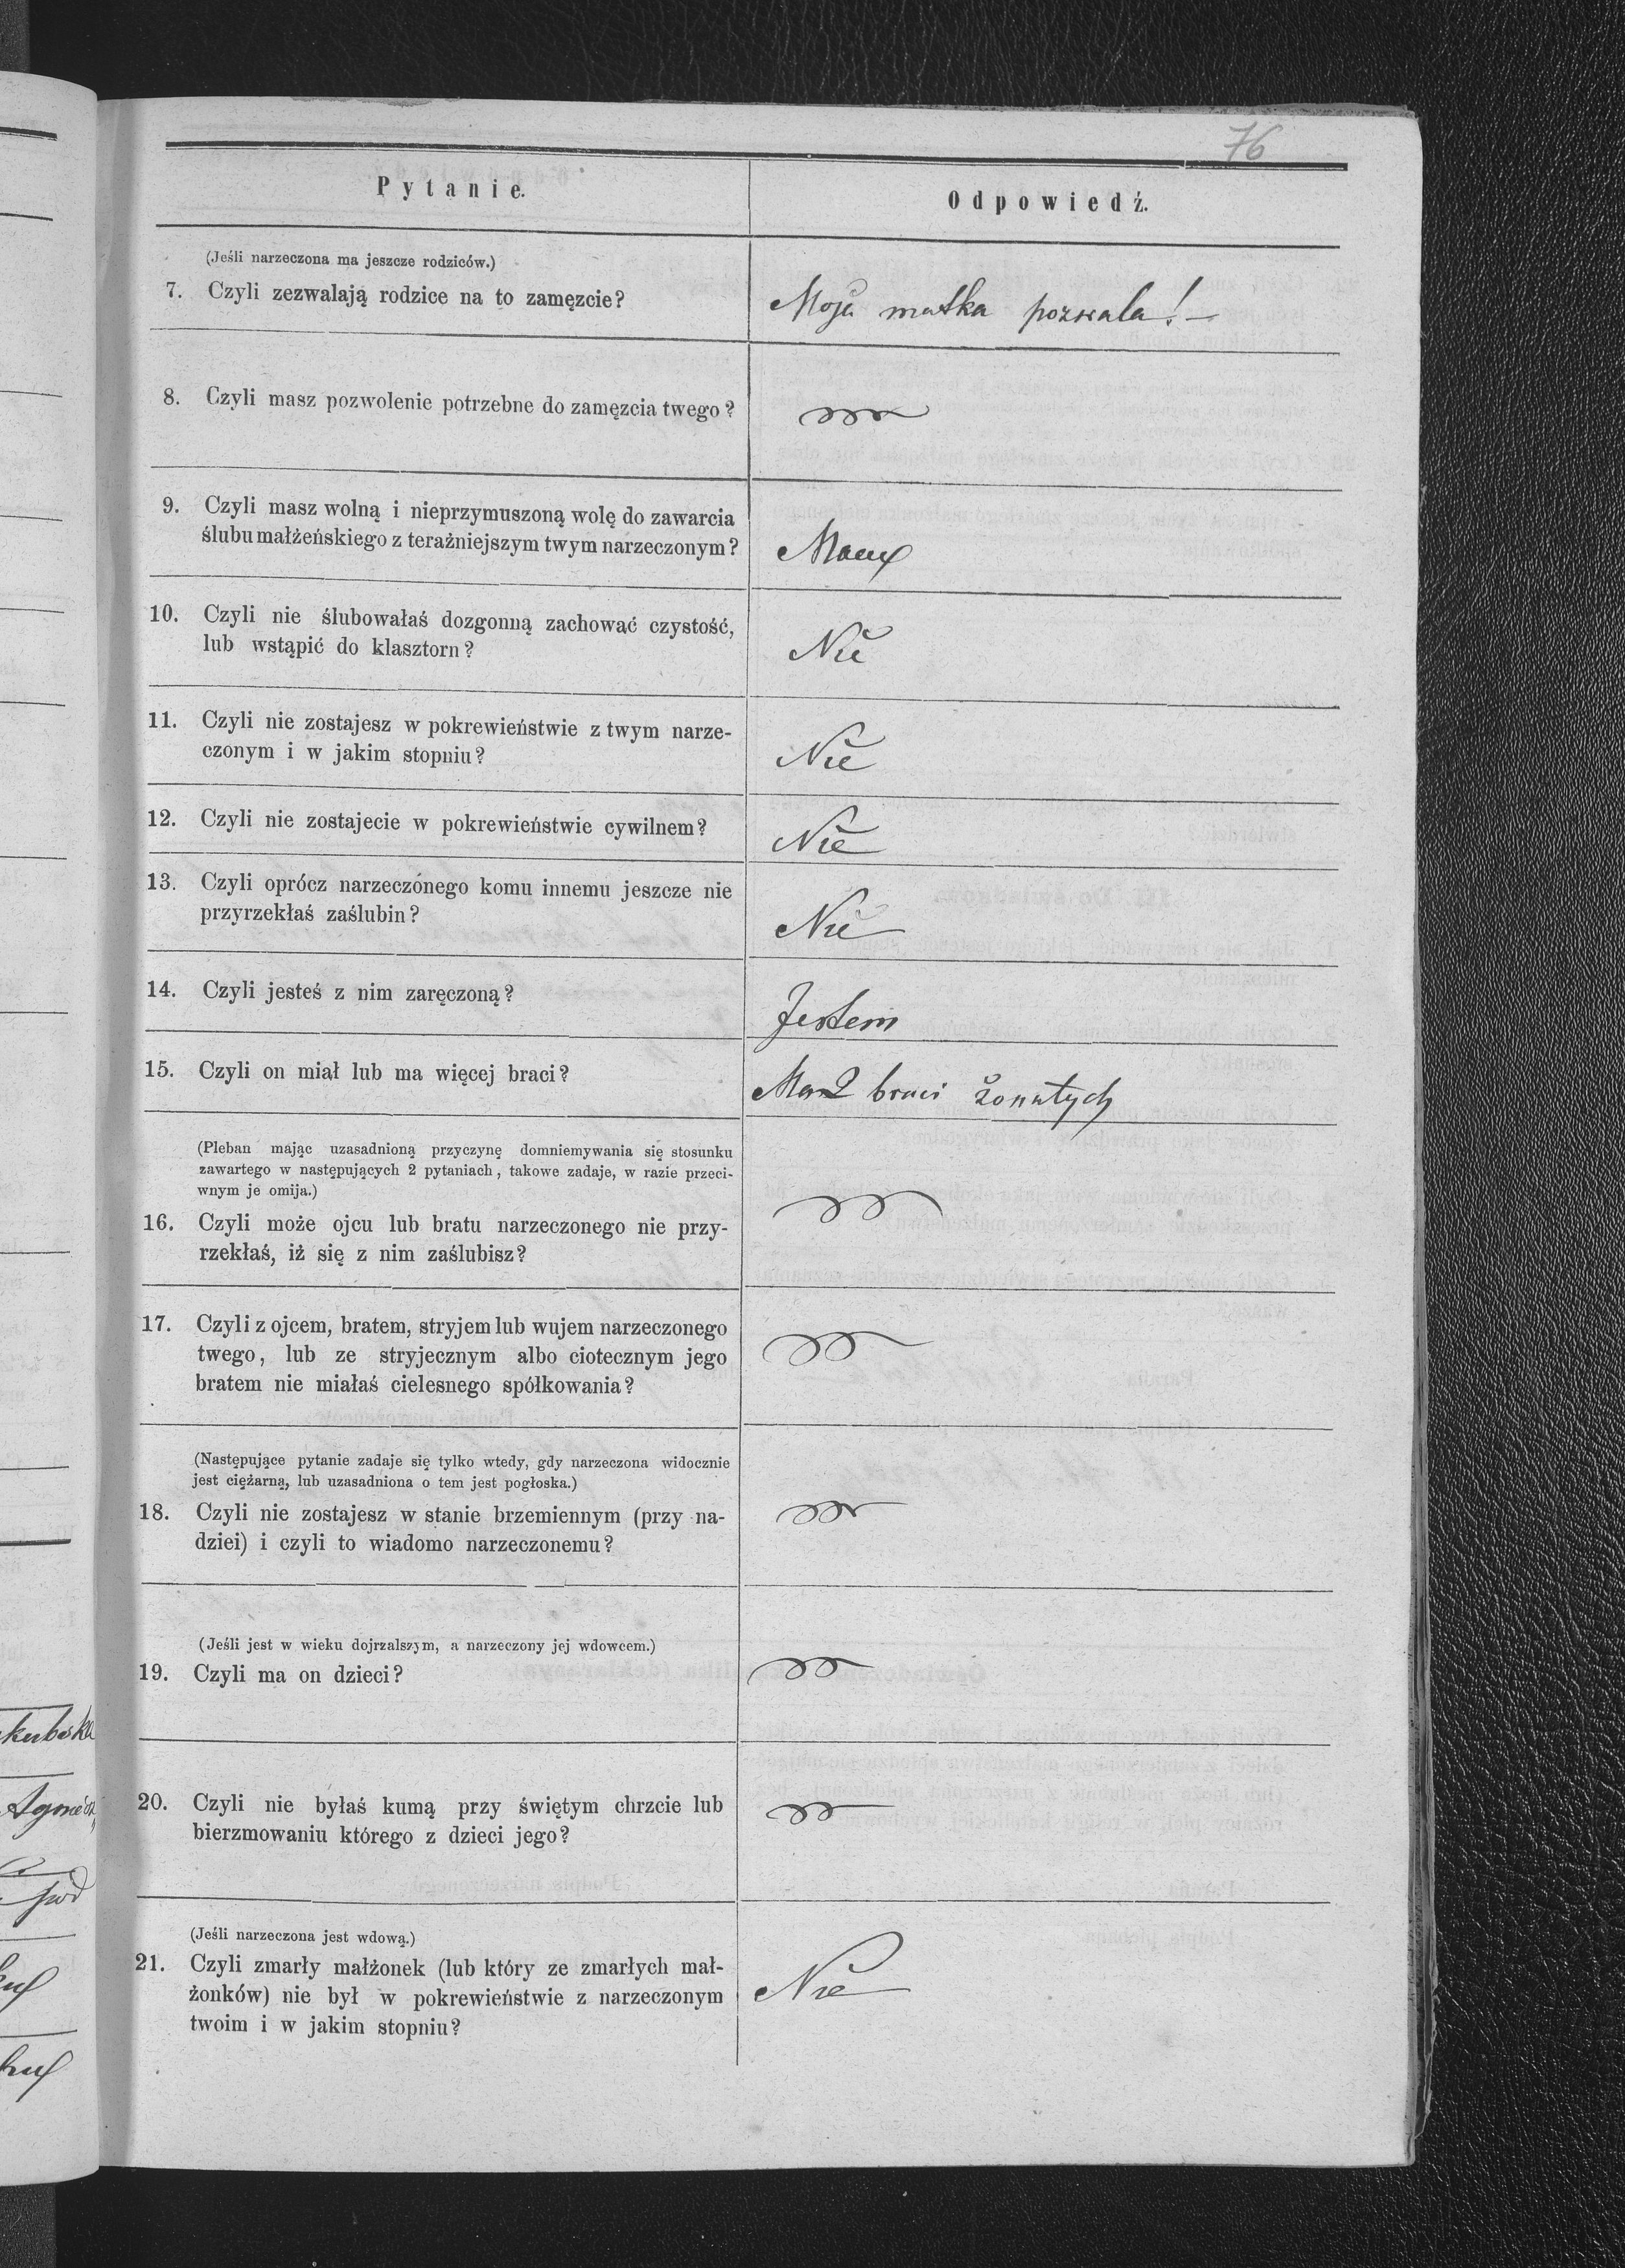 76
Pytanie.
Odpowiedź.
(Jeśli narzeczona ma jeszcze rodziców.)
7. Czyli zezwalają rodzice na to zamęzcie?
Moja matka pozwala! –
8. Czyli masz pozwolenie potrzebne do zamęzcia twego?
9. Czyli masz wolną i nieprzymuszoną wolę do zawarcia
ślubu małżeńskiego z teraźniejszym twym narzeczonym?
Mam
10. Czyli nie ślubowałaś dozgonną zachować czystość,
lub wstąpić do klasztorn?
Nie
11. Czyli nie zostajesz w pokrewieństwie z twym narze-
czonym i w jakim stopniu?
Nie
12. Czyli nie zostajecie w pokrewieństwie cywilnem?
Nie
13. Czyli oprócz narzeczonego komu innemu jeszcze nie
przyrzekłaś zaślubin?
Nie
14. Czyli jesteś z nim zaręczoną?
Jestem
15. Czyli on miał lub ma więcej braci?
Ma 2 braci żonatych
(Pleban mając uzasadnioną przyczynę domniemywania się stosunku
zawartego w następujących 2 pytaniach, takowe zadaje, w razie przeci-
wnym je omija.)
16. Czyli może ojcu lub bratu narzeczonego nie przy-
rzekłaś, iż się z nim zaślubisz?
17. Czyli z ojcem, bratem, stryjem lub wujem narzeczonego
twego, lub ze stryjecznym albo ciotecznym jego
bratem nie miałaś cielesnego spółkowania?
(Następujące pytanie zadaje się tylko wtedy, gdy narzeczona widocznie
jest ciężarną, lub uzasadniona o tem jest pogłoska.)
18. Czyli nie zostajesz w stanie brzemiennym (przy na-
dziei) i czyli to wiadomo narzeczonemu?
(Jeśli jest w wieku dojrzalszym, a narzeczony jej wdowcem.)
19. Czyli ma on dzieci?
20. Czyli nie byłaś kumą przy świętym chrzcie lub
bierzmowaniu którego z dzieci jego?
(Jeśli narzeczona jest wdową.)
21. Czyli zmarły małżonek (lub który ze zmarłych mał-
żonków) nie był w pokrewieństwie z narzeczonym
twoim i w jakim stopniu?
Nie